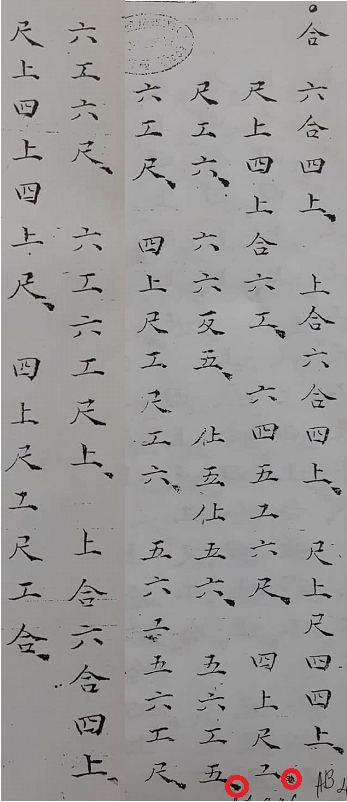 合 六合四上、 上合六合四上、 尺上尺四四上、
尺上四上合六工、 六四五工六尺、 四上尺工
尺工六、 六六反五、 仩五仩五六、 五六工五、
六工尺、 四上尺工尺工六、 五六工五六工尺、
六工六尺、 六工六工尺上、 上合六合四上、
尺上四上四上尺、 四上尺工尺工合、
AB